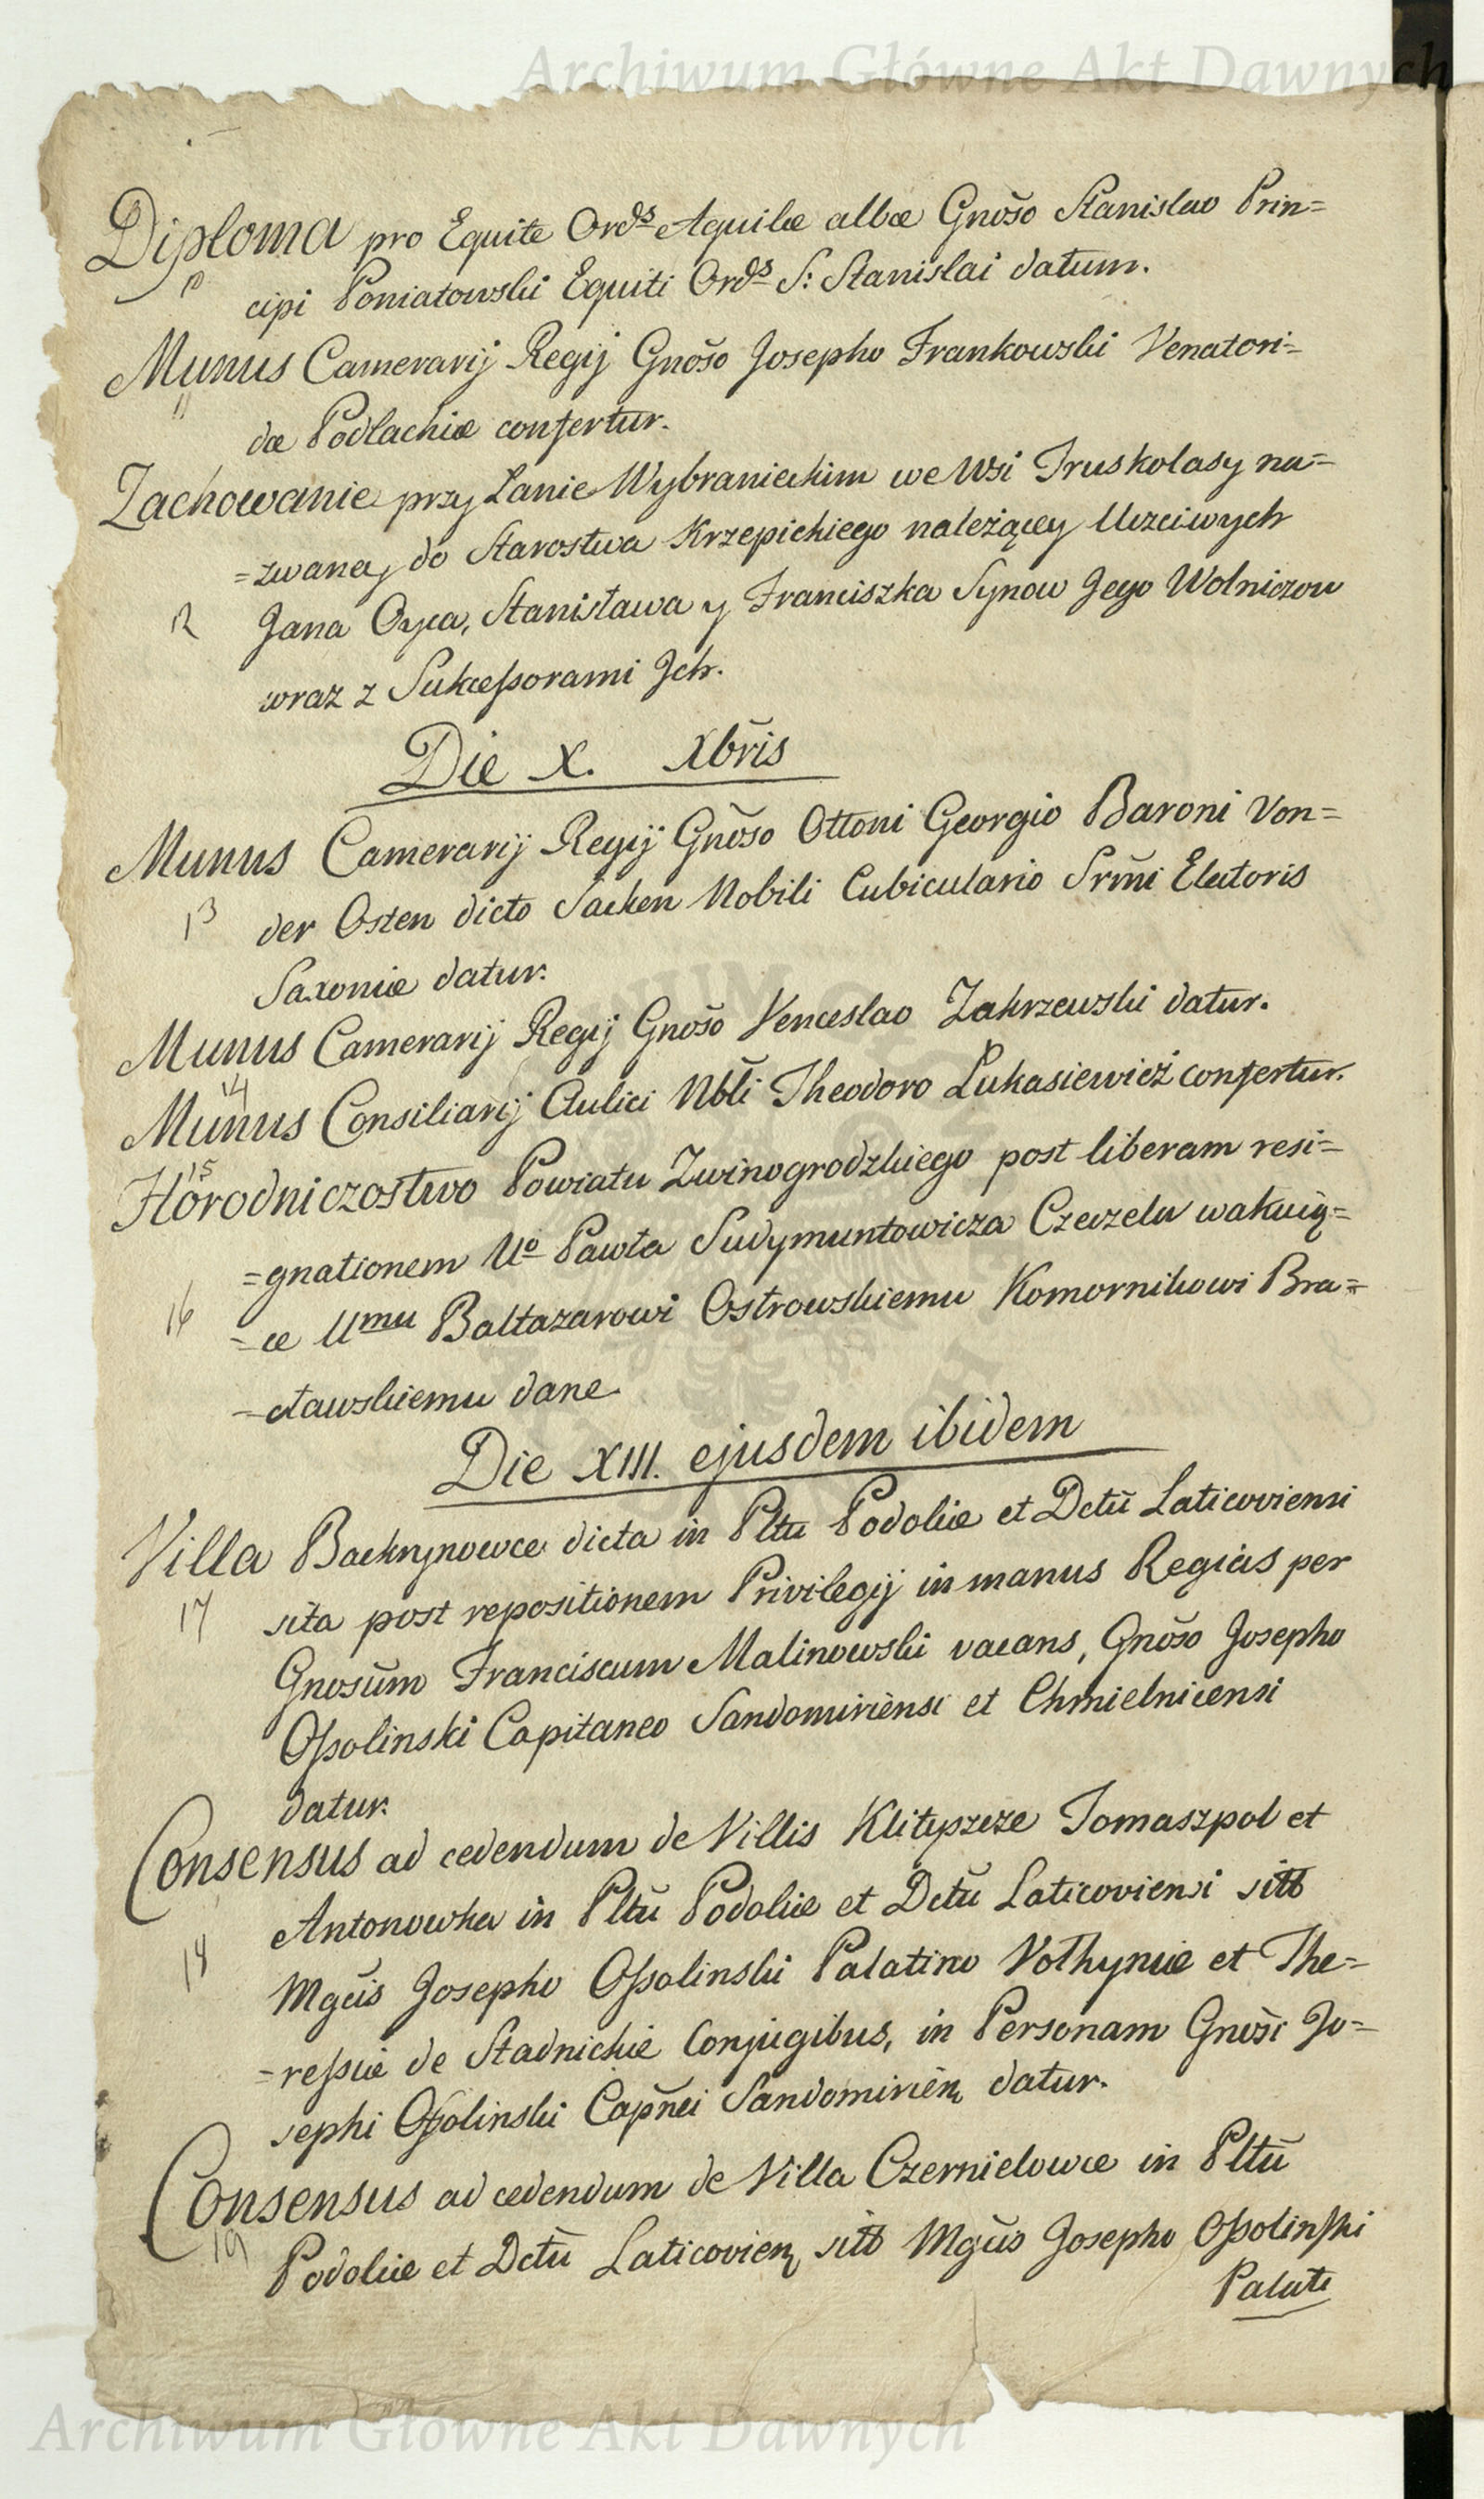 Archiwum Główne Akt Dawnych
Diploma pro Equite Ords Aquilæ albæ Gnoso Stanislao Prin=
10 cipi Poniatowski Equiti Ords S: Stanislai datum.
Munus Camerarij Regij Gnoso Josepho Frankowski Venatori=
11 dæ Podlachiæ confertur.
Zachowanie przy Łanie Wybranieckim we Wsi Truskolasy na=
=zwaney do Starostwa Krzepickiego należącey Uczciwych
12 Jana Oyca, Stanisława y Franciszka Synow Jego Wolniczow
wraz z Sukceſsorami Jch.
Die X. Xbris
Munus Camerarij Regij Gnoso Ottoni Georgio Baroni Von=
13 der Osten dicto Sacken Nobili Cubiculario Srmi Electoris
Saxoniæ datur.
Munus Camerarij Regij Gnoso Venceslao Zakrzewski datur.
14
Munus Consiliarij Aulici Nbli Theodoro Łukasiewicz confertur.
15
Horodniczostwo Powiatu Zwinogrodzkiego post liberam resi=
=gnationem Uo Pawła Sudymuntowicza Czeczela wakuią=
16 =ce Umu Baltazarowi Ostrowskiemu Komornikowi Bra=
=cławskiemu dane
Die XIII. ejusdem ibidem
Villa Bachrynowce dicta in Pltu Podoliæ et Dctu Laticoviensi
17 sita post repositionem Privilegij in manus Regias per
Gnosum Franciscum Malinowski vacans, Gnoso Josepho
Oſsolinski Capitaneo Sandomiriensi et Chmielnicensi
datur.
Consensus ad cedendum de Villis Tomaszpol et
Antonowka in Pltu Podoliæ et Dctu Laticoviensi sitt
18 Mgcis Josepho Oſsolinski Palatino Volhyniæ et The=
=reſsiæ de Stadnickie Conjugibus, in Personam Gnosi Jo=
sephi Oſsolinski Capnei Sandomirien datur.
Consensus ad cedendum de Villa Czernielowce in Pltu
19 Podoliæ et Dctu Laticovien sitt Mgcis Josepho Oſsolinſki
Palati
Archiwum Główne Akt Dawnych